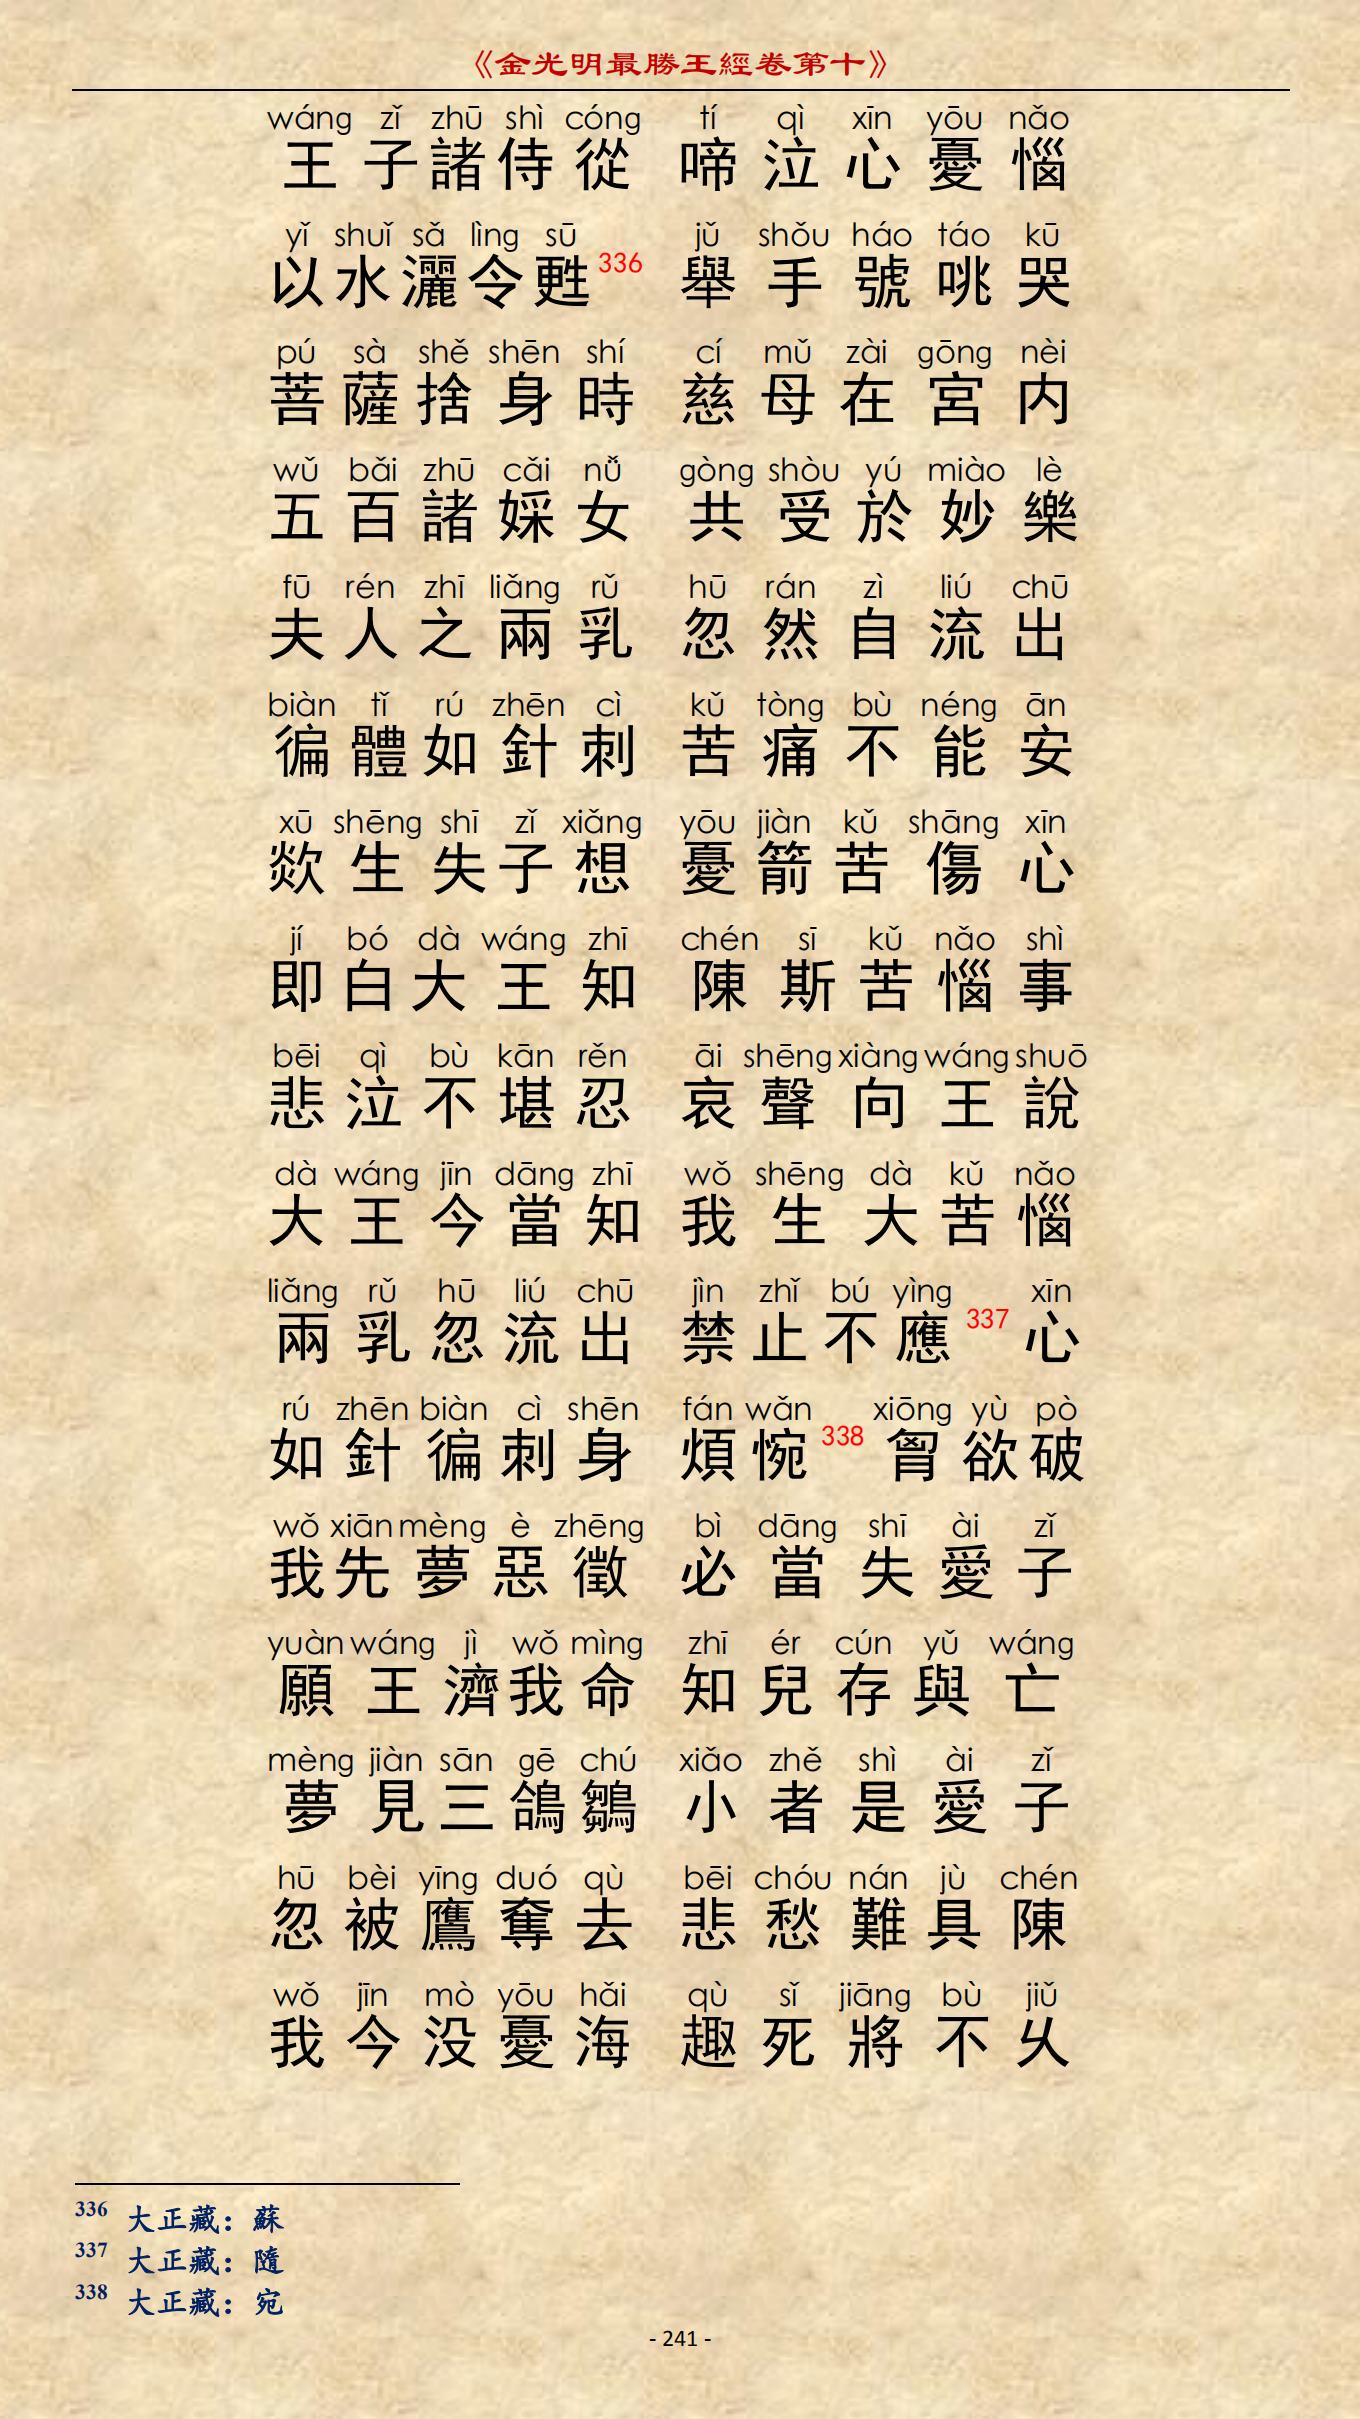 《金光明最勝王經卷第十》
wáng zǐ zhū shì cóng tí qì xīn yōu nǎo
王子諸侍從 啼泣心憂惱
yǐ shuǐ sǎ lìng sū jǔ shǒu háo táo kū
以水灑令甦336 舉手號咷哭
pú sà shě shēn shí cí mǔ zài gōng nèi
菩薩捨身時 慈母在宮内
wǔ bǎi zhū cǎi nǚ gòng shòu yú miào lè
五百諸婇女 共受於妙樂
fū rén zhī liǎng rǔ hū rán zì liú chū
夫人之兩乳 忽然自流出
biàn tǐ rú zhēn cì kǔ tòng bù néng ān
徧體如針刺 苦痛不能安
xū shēng shī zǐ xiǎng yōu jiàn kǔ shāng xīn
欻生失子想 憂箭苦傷心
jí bó dà wáng zhī chén sī kǔ nǎo shì
即白大王知 陳斯苦惱事
bēi qì bù kān rěn āi shēng xiàng wáng shuō
悲泣不堪忍 哀聲向王說
dà wáng jīn dāng zhī wǒ shēng dà kǔ nǎo
大王今當知 我生大苦惱
liǎng rǔ hū liú chū jìn zhǐ bú yìng xīn
兩乳忽流出 禁止不應337心
rú zhēn biàn cì shēn fán wǎn xiōng yù pò
如針徧刺身 煩惋338胷欲破
wǒ xiān mèng è zhēng bì dāng shī ài zǐ
我先夢惡徵 必當失愛子
yuàn wáng jì wǒ mìng zhī ér cún yǔ wáng
願王濟我命 知兒存與亡
mèng jiàn sān gē chú xiǎo zhě shì ài zǐ
夢見三鴿鶵 小者是愛子
hū bèi yīng duó qù bēi chóu nán jù chén
忽被鷹奪去 悲愁難具陳
wǒ jīn mò yōu hǎi qù sǐ jiāng bù jiǔ
我今没憂海 趣死將不乆
336 大正藏：蘇
337 大正藏：隨
338 大正藏：宛
- 241 -